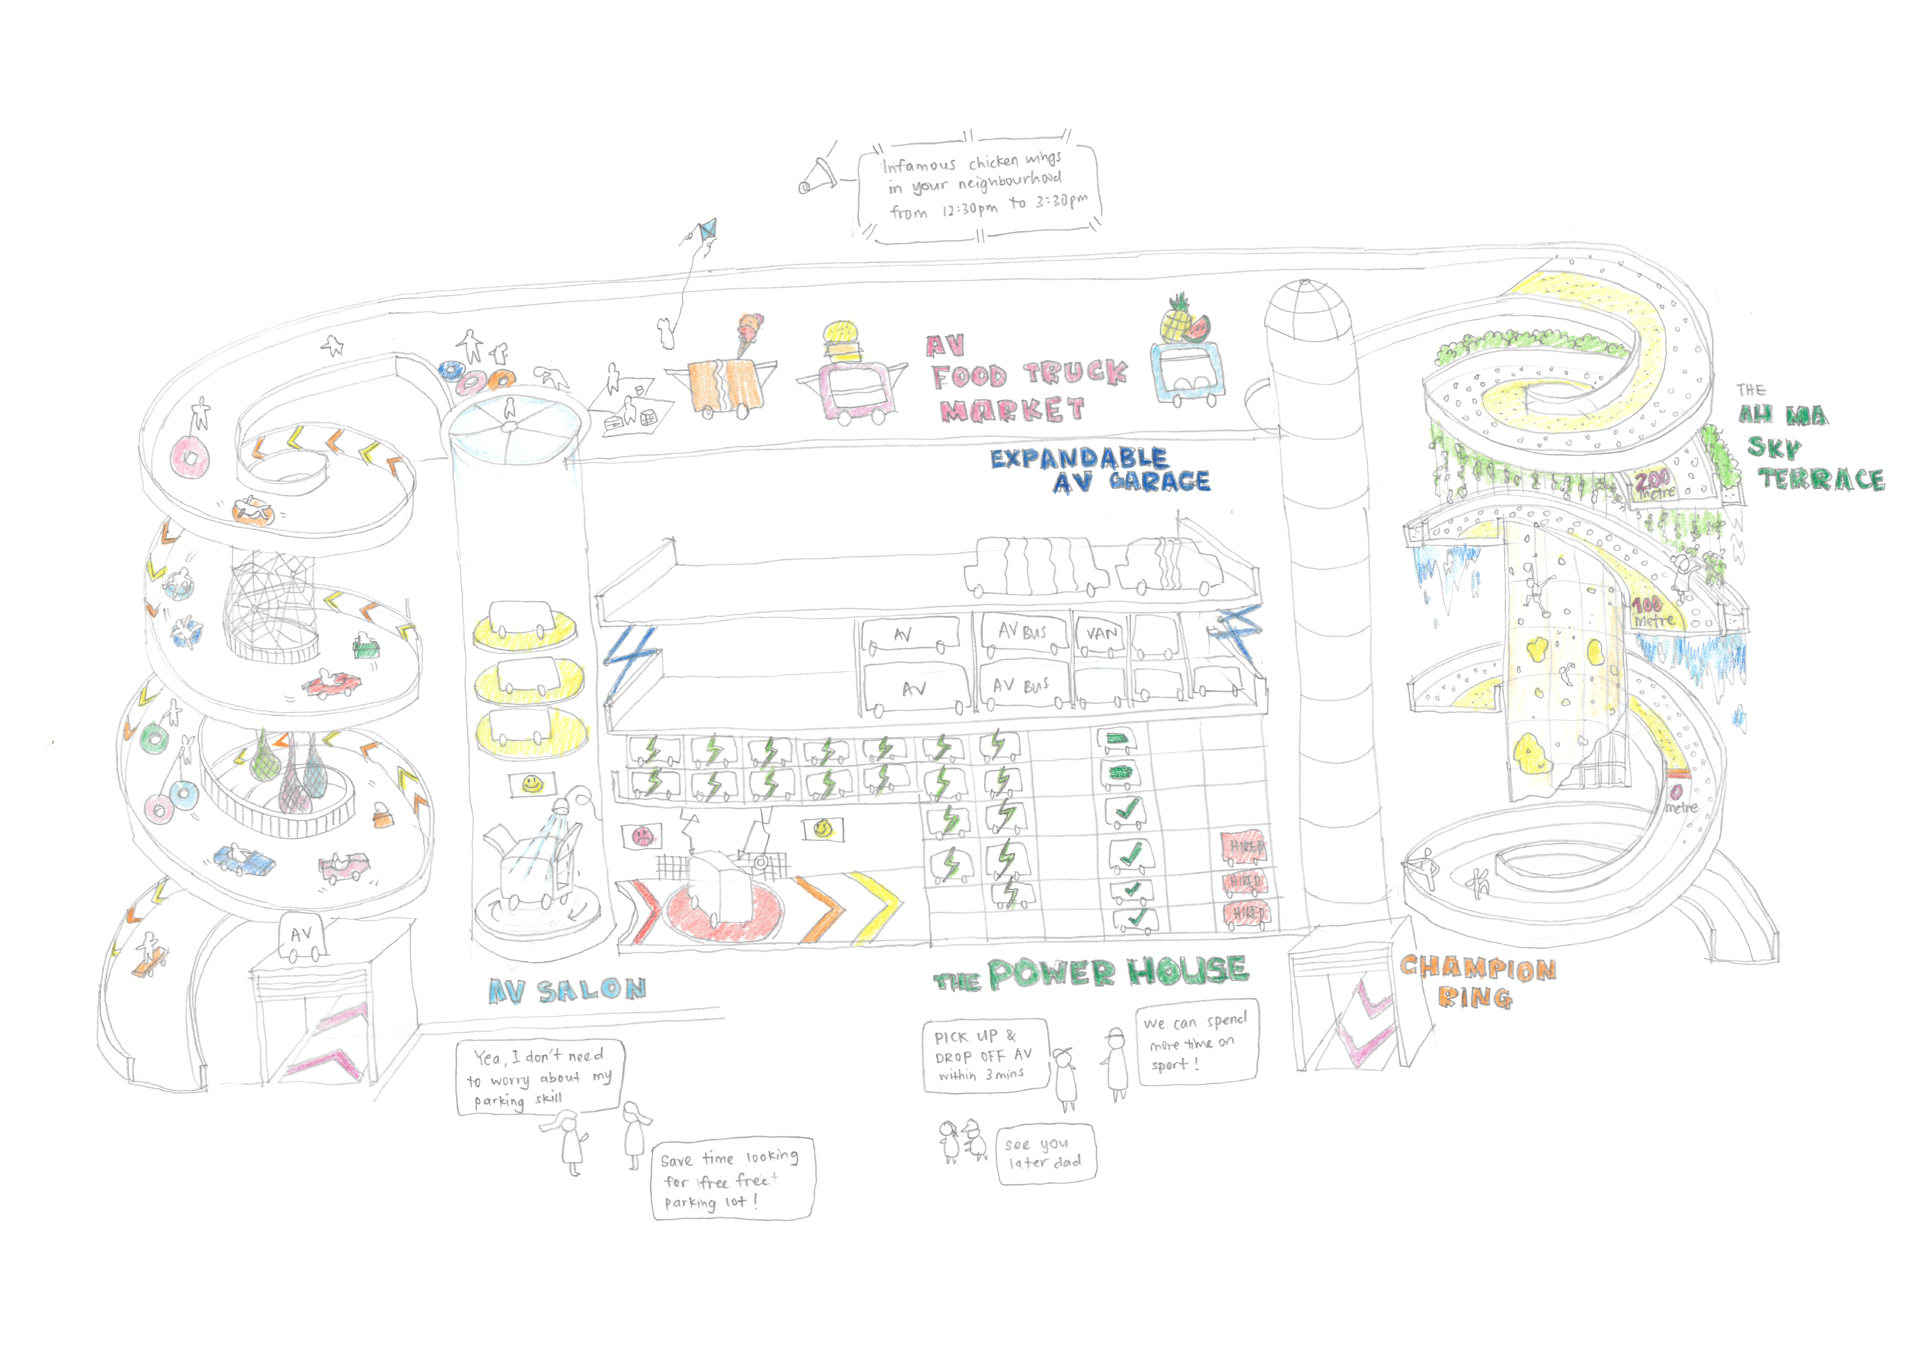 Infamous chicken wings
in your neighbourhood
from 12:30pm to 3:30pm
AV
FOOD TRUCK
MARKET
EXPANDABLE
AV GARAGE
THE
AH MA
SKY
TERRACE
200
metre
100
metre
0
metre
AV
AV BUS
VAN
AV
AV BUS
HIRED
HIRED
HIRED
AV
AV SALON
THE POWER HOUSE
CHAMPION
RING
Yea, I don't need
to worry about my
parking skill
Save time looking
for free free
parking lot!
PICK UP &
DROP OFF AV
within 3 mins
We can spend
more time on
sport!
see you
later dad